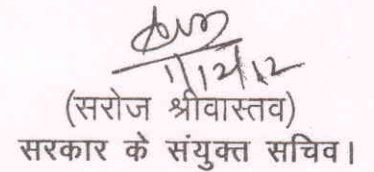 1/12/12
(सरोज श्रीवास्तव)
सरकार के संयुक्त सचिव।